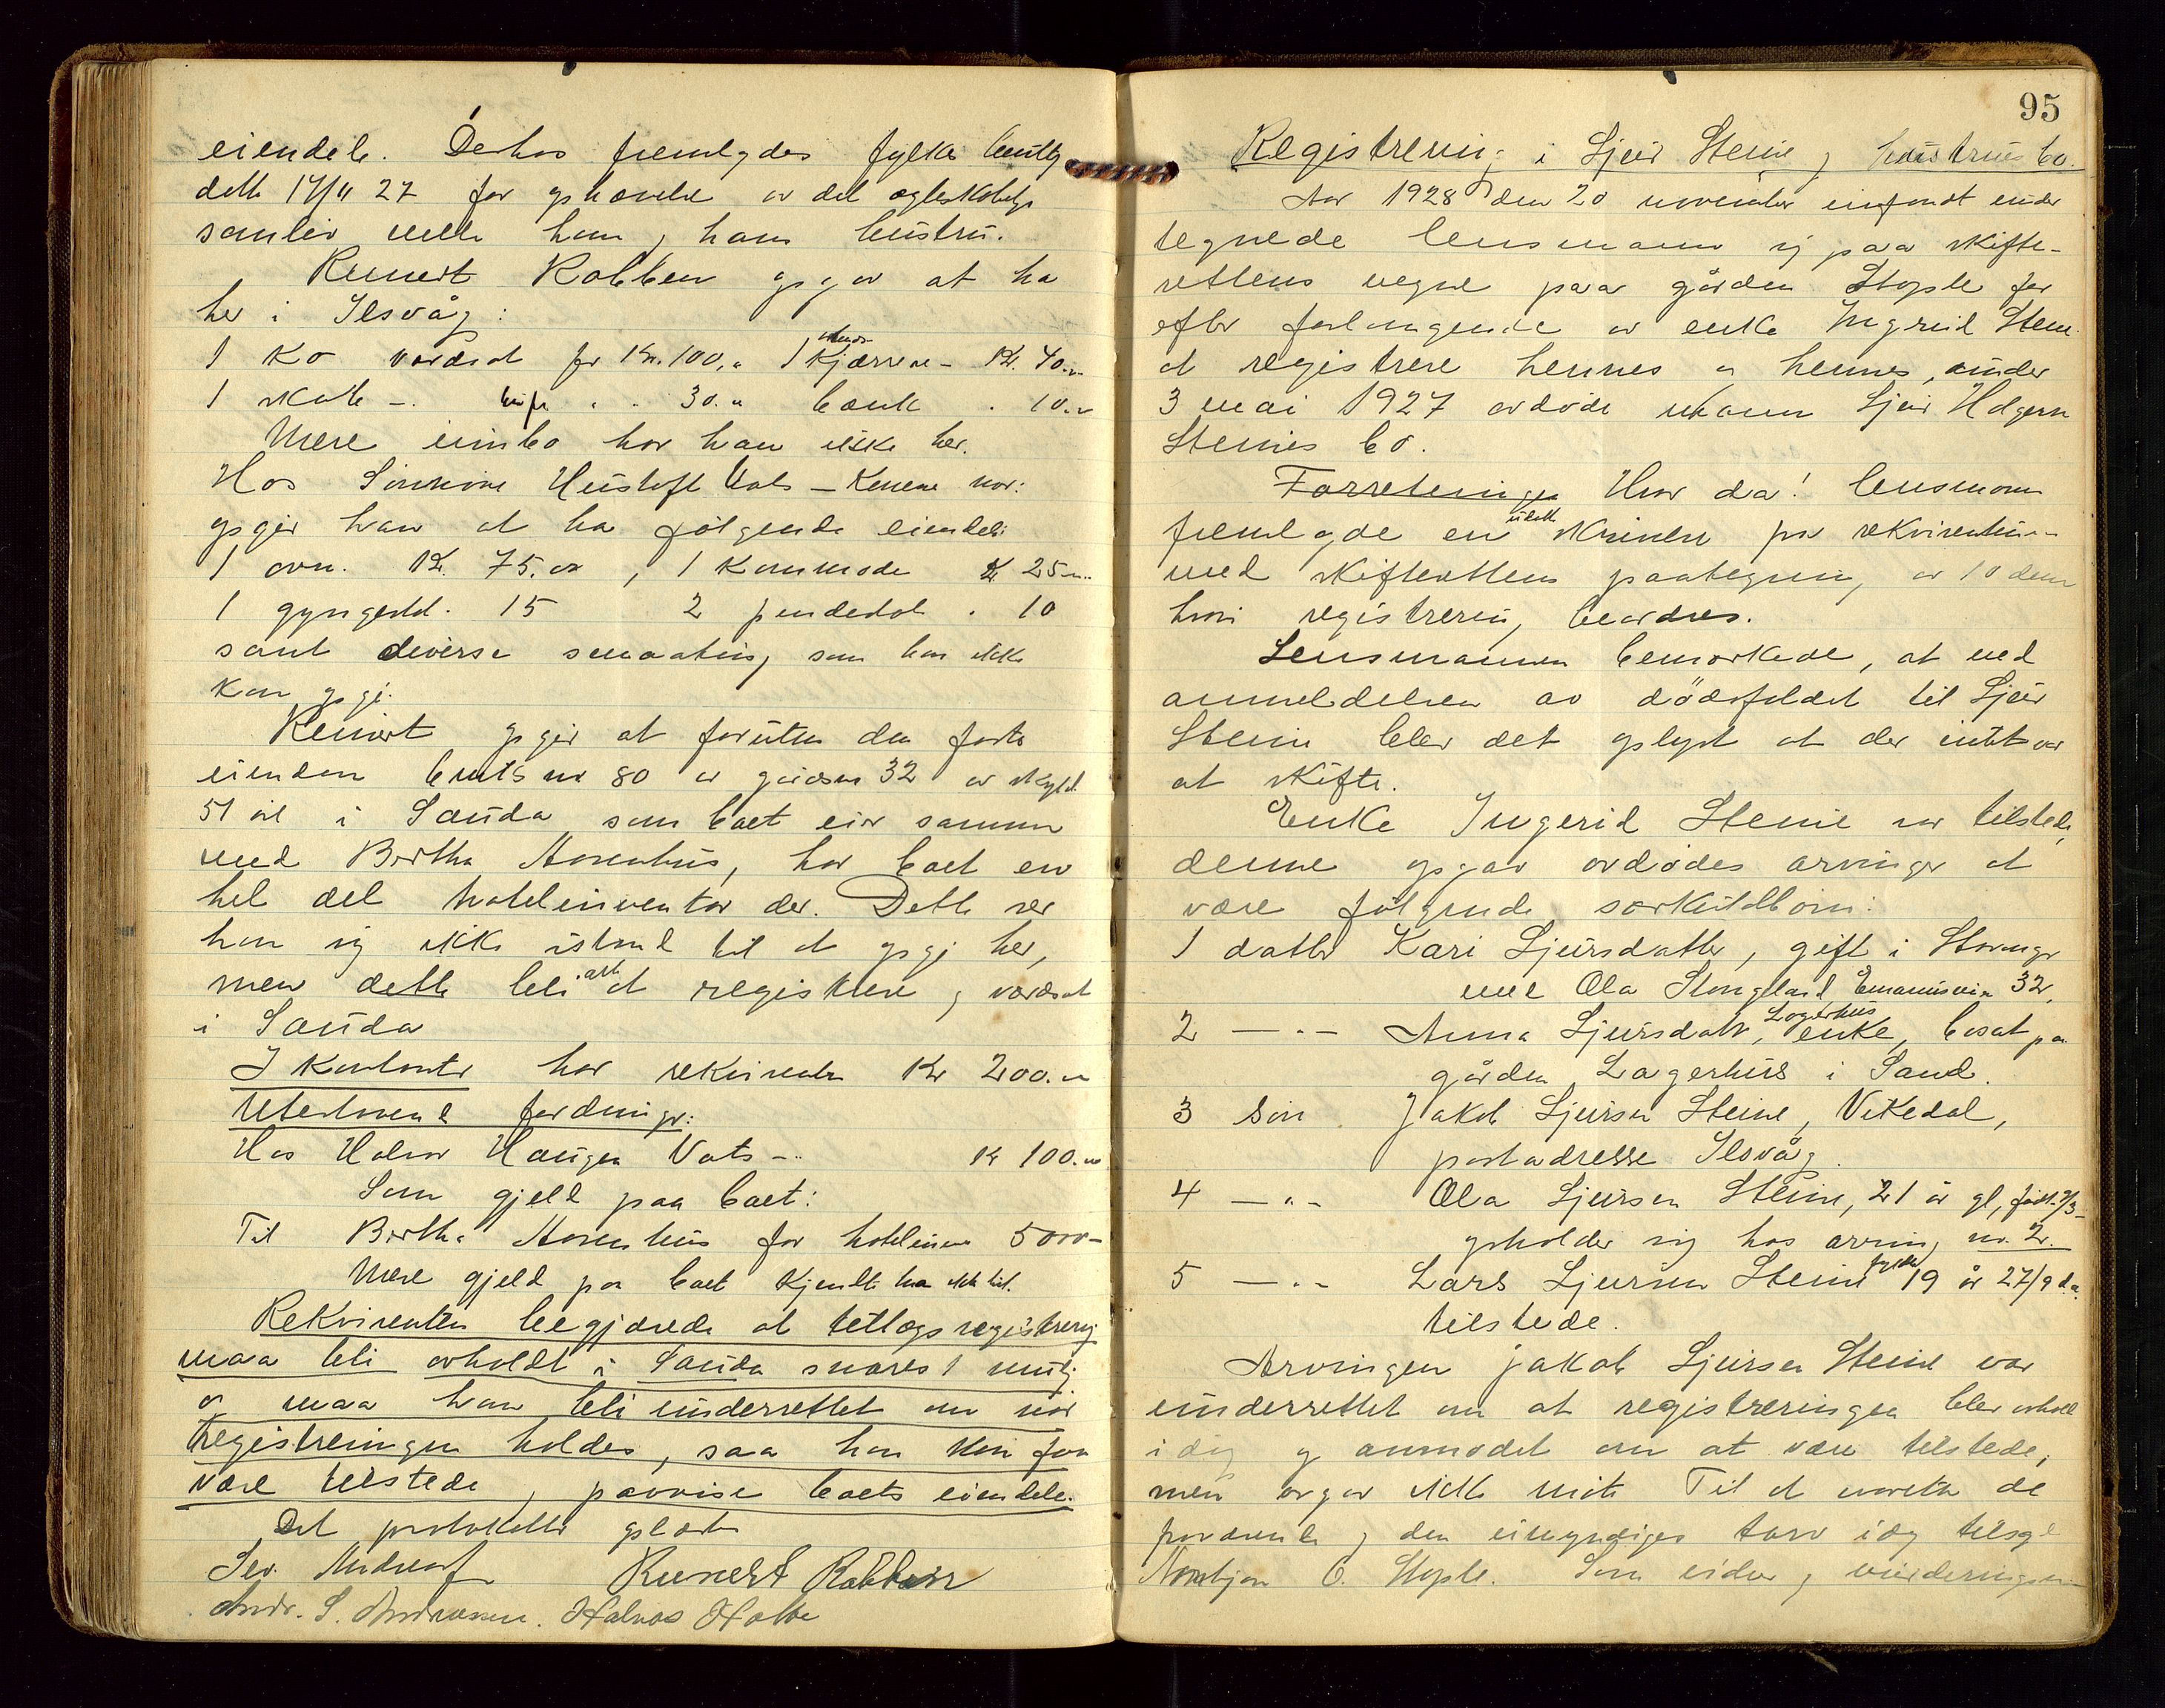 eiendele. Derhos fremlagdes fylkets bevilg
dette 17/11 27 for ophævelse av det egteskabelige
samliv mellem ham og hans hustru.
Reinert Robben opgav at ha
her i Ilsvåg:
1 ko værdsat for Kr. 100,- 1 Kjærre - Kr. 40.-
1 - 30.- bænk . 10.-
Mere innbo har han ikke her.
Hos
opgir han at ha følgende eiendele
1 ovn. Kr. 75.00, 1 Kommode Kr 25-
1 gyngestol. 15 2 pindestol . 10
samt diverse smaating som han ikke
kan opgi.
Reinert opgir at foruten den faste
eiendom bruksnr 80 av gårdsnr 32 av skyld
51 øre i Sauda som boet eier sammen
med Bertha Aarenhus, har boet en
hel del hotelinventar der. Dette ser
han sig ikke istand til at opgi her,
men dette bli at registrere og værdsat
i Sauda
I Kontanter har rekvirenten Kr 200.-
Utestaaende fordringer:
Hos Halvor Haugen Vats - Kr 100.-
Som gjeld paa boet:
Til Bertha Aarenhus for 5000-
Mere gjeld paa boet kjendte han ikke til.
Rekvirenten begjærede at tillægsregistrering
maa bli avholdt i Sauda snarest mulig
og maa han bli underrettet om når
registreringen holdes, saa han kan faa
være tilstede og paavise boets eiendele.
Det protokollerte oplæst
Reinert Robben
Andr. S. Andreassen. Halvor
95
Registrering i Sjur Steine og hustrus bo.
Aar 1928 den 20 november innfandt under
tegnede lensmann sig paa skifte-
rettens vegne paa gården Stople for
efter forlangende av enke Ingrid Steine
at registrere hennes og hennes, under
3 mai 1927 avdøde mann Sjur Helgesen
Steines bo.
Forretningen Hvor da! lensmann
fremlagde en udatert skrivelse fra rekvirenten
med skifterettens paategning av 10 dens
hvori registrering beordres.
Lensmannen bemerkede, at ved
anmeldelsen av dødsfaldet til Sjur
Steine blev det oplyst at der intet var
at skifte.
Enke Ingerid Steine var tilstede,
denne opgav avdødes arvinger at
være følgende særkuldbarn:
1 datter Kari Sjursdatter, gift i Stavanger
med Ola Stangeland, Emanuisvei 32,
2 - " - Anna Sjursdatter, Lagerhus enke, bosat paa
gården Lagerhus i Sand.
3 søn Jakob Sjursen Steine, Vikedal,
postadresse Ilsvåg.
4 - " - Ola Sjursen Steine, 21 år gl, født 7/3-
opholder sig hos arving nr. 2.
5 - " - Lars Sjursen Steine fyldte 19 år 27/9 d.a.
tilstede.
Arvingen Jakob Sjursen Steine var
underrettet om at registreringen blev avholdt
i dag og anmodet om at være tilstede,
men avgav ikke møte Til at ivareta de
fraværende og den umyndiges tarv idag tilsagt
O. Stople. Som vidner og vurderingsmenn